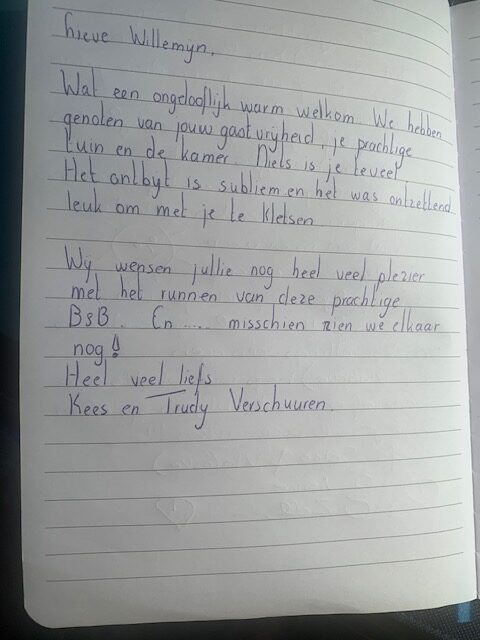 Lieve Willemyn,
Wat een ongelooflijk warm welkom. We hebben
genoten van jouw gastvrijheid, je prachtige
tuin en de kamer. Niets is je teveel.
Het ontbyt is subliem en het was ontzettend
leuk om met je te kletsen.
Wij wensen jullie nog heel veel plezier
met het runnen van deze prachtige
B&B. En .... misschien zien we elkaar
nog!
Heel veel liefs
Kees en Trudy Verschuuren.